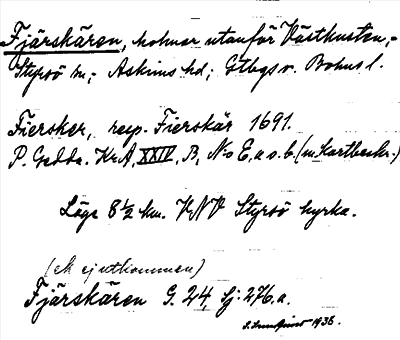 Fjärskären, holmar utanför Västkusten,-
Styrsö sn,- Askims hd, Gtbgs o. Bohus l.
Fiersker, resp. Fierskär 1691.
P. Gedda. Kr.A, XXIV, B, No E, a o. b. (m. Kartbeskr.)
Läge 8½ km. VNV Styrsö kyrka.
(Ek ej utkommen)
Fjärskären G. 24, Sj: 276.a.
1936.